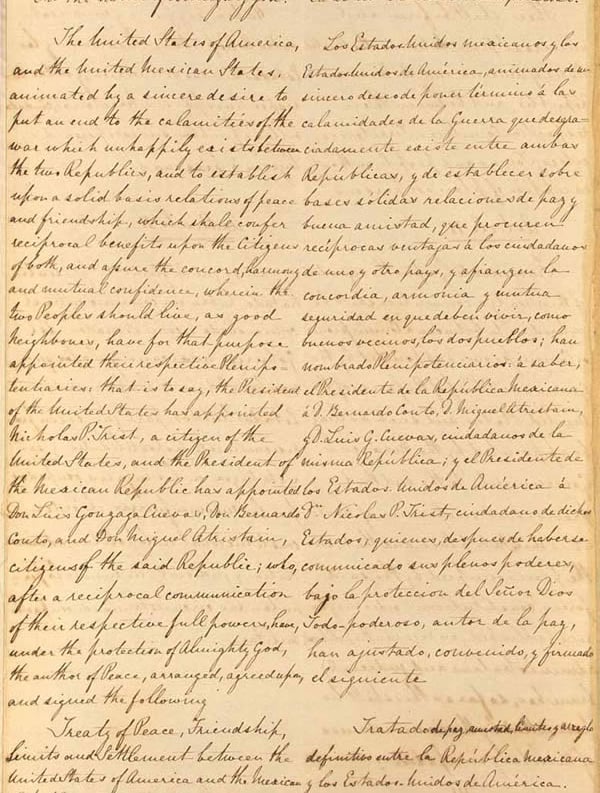 The United States of America,
and the United Mexican States,
animated by a sincere desire to
put an end to the calamities of the
war which unhappily exists between
the two Republics, and to establish
upon a solid basis relations of peace
and friendship, which shall confer
reciprocal benefits upon the Citizens
of both, and assure the concord, harmony
and mutual confidence, wherein the
two Peoples should live, as good
Neighbours, have for that purpose
appointed their respective Plenipo-
tentiaries: that is to say, the President
of the United States has appointed
Nicholas P. Trist, a citizen of the
United States, and the President of
the Mexican Republic has appointed
Don Luis Gonzaga Cuevas, Don Bernardo
Couto, and Don Miguel Atristain,
citizens of the said Republic; who,
after a reciprocal communication
of their respective full powers, have,
under the protection of Almighty God,
the author of Peace, arranged, agreed upon,
and signed the following
Treaty of Peace, Friendship,
Limits and Settlement between the
United States of America and the Mexican
Los Estados Unidos mexicanos y los
Estados Unidos de América, animados de un
sincero deseo de poner término á las
calamidades de la Guerra que desgra-
ciadamente existe entre ambas
Repúblicas, y de establecer sobre
bases sólidas relaciones de paz y
buena amistad, que procuren
recíprocas ventajas á los ciudadanos
de uno y otro pays, y afianzen la
concordia, armonia y mutua
seguridad en que deben vivir, como
buenos vecinos, los dos pueblos; han
nombrado Plenipotenciarios: á saber,
el Presidente de la República Mexicana
á D. Bernardo Couto, D. Miguel Atristain,
y D. Luis G. Cuevas, ciudadanos de la
misma República; y el Presidente de
los Estados Unidos de América á
Dn. Nicolas P. Trist, ciudadano de dichos
Estados; quienes, despues de haberse
comunicado sus plenos poderes,
bajo la proteccion del Señor Dios
Todo-poderoso, autor de la paz,
han ajustado, convenido, y firmado
el siguiente
Tratado de paz, amistad, límites y arreglo
definitivo entre la República mexicana
y los Estados-Unidos de América.